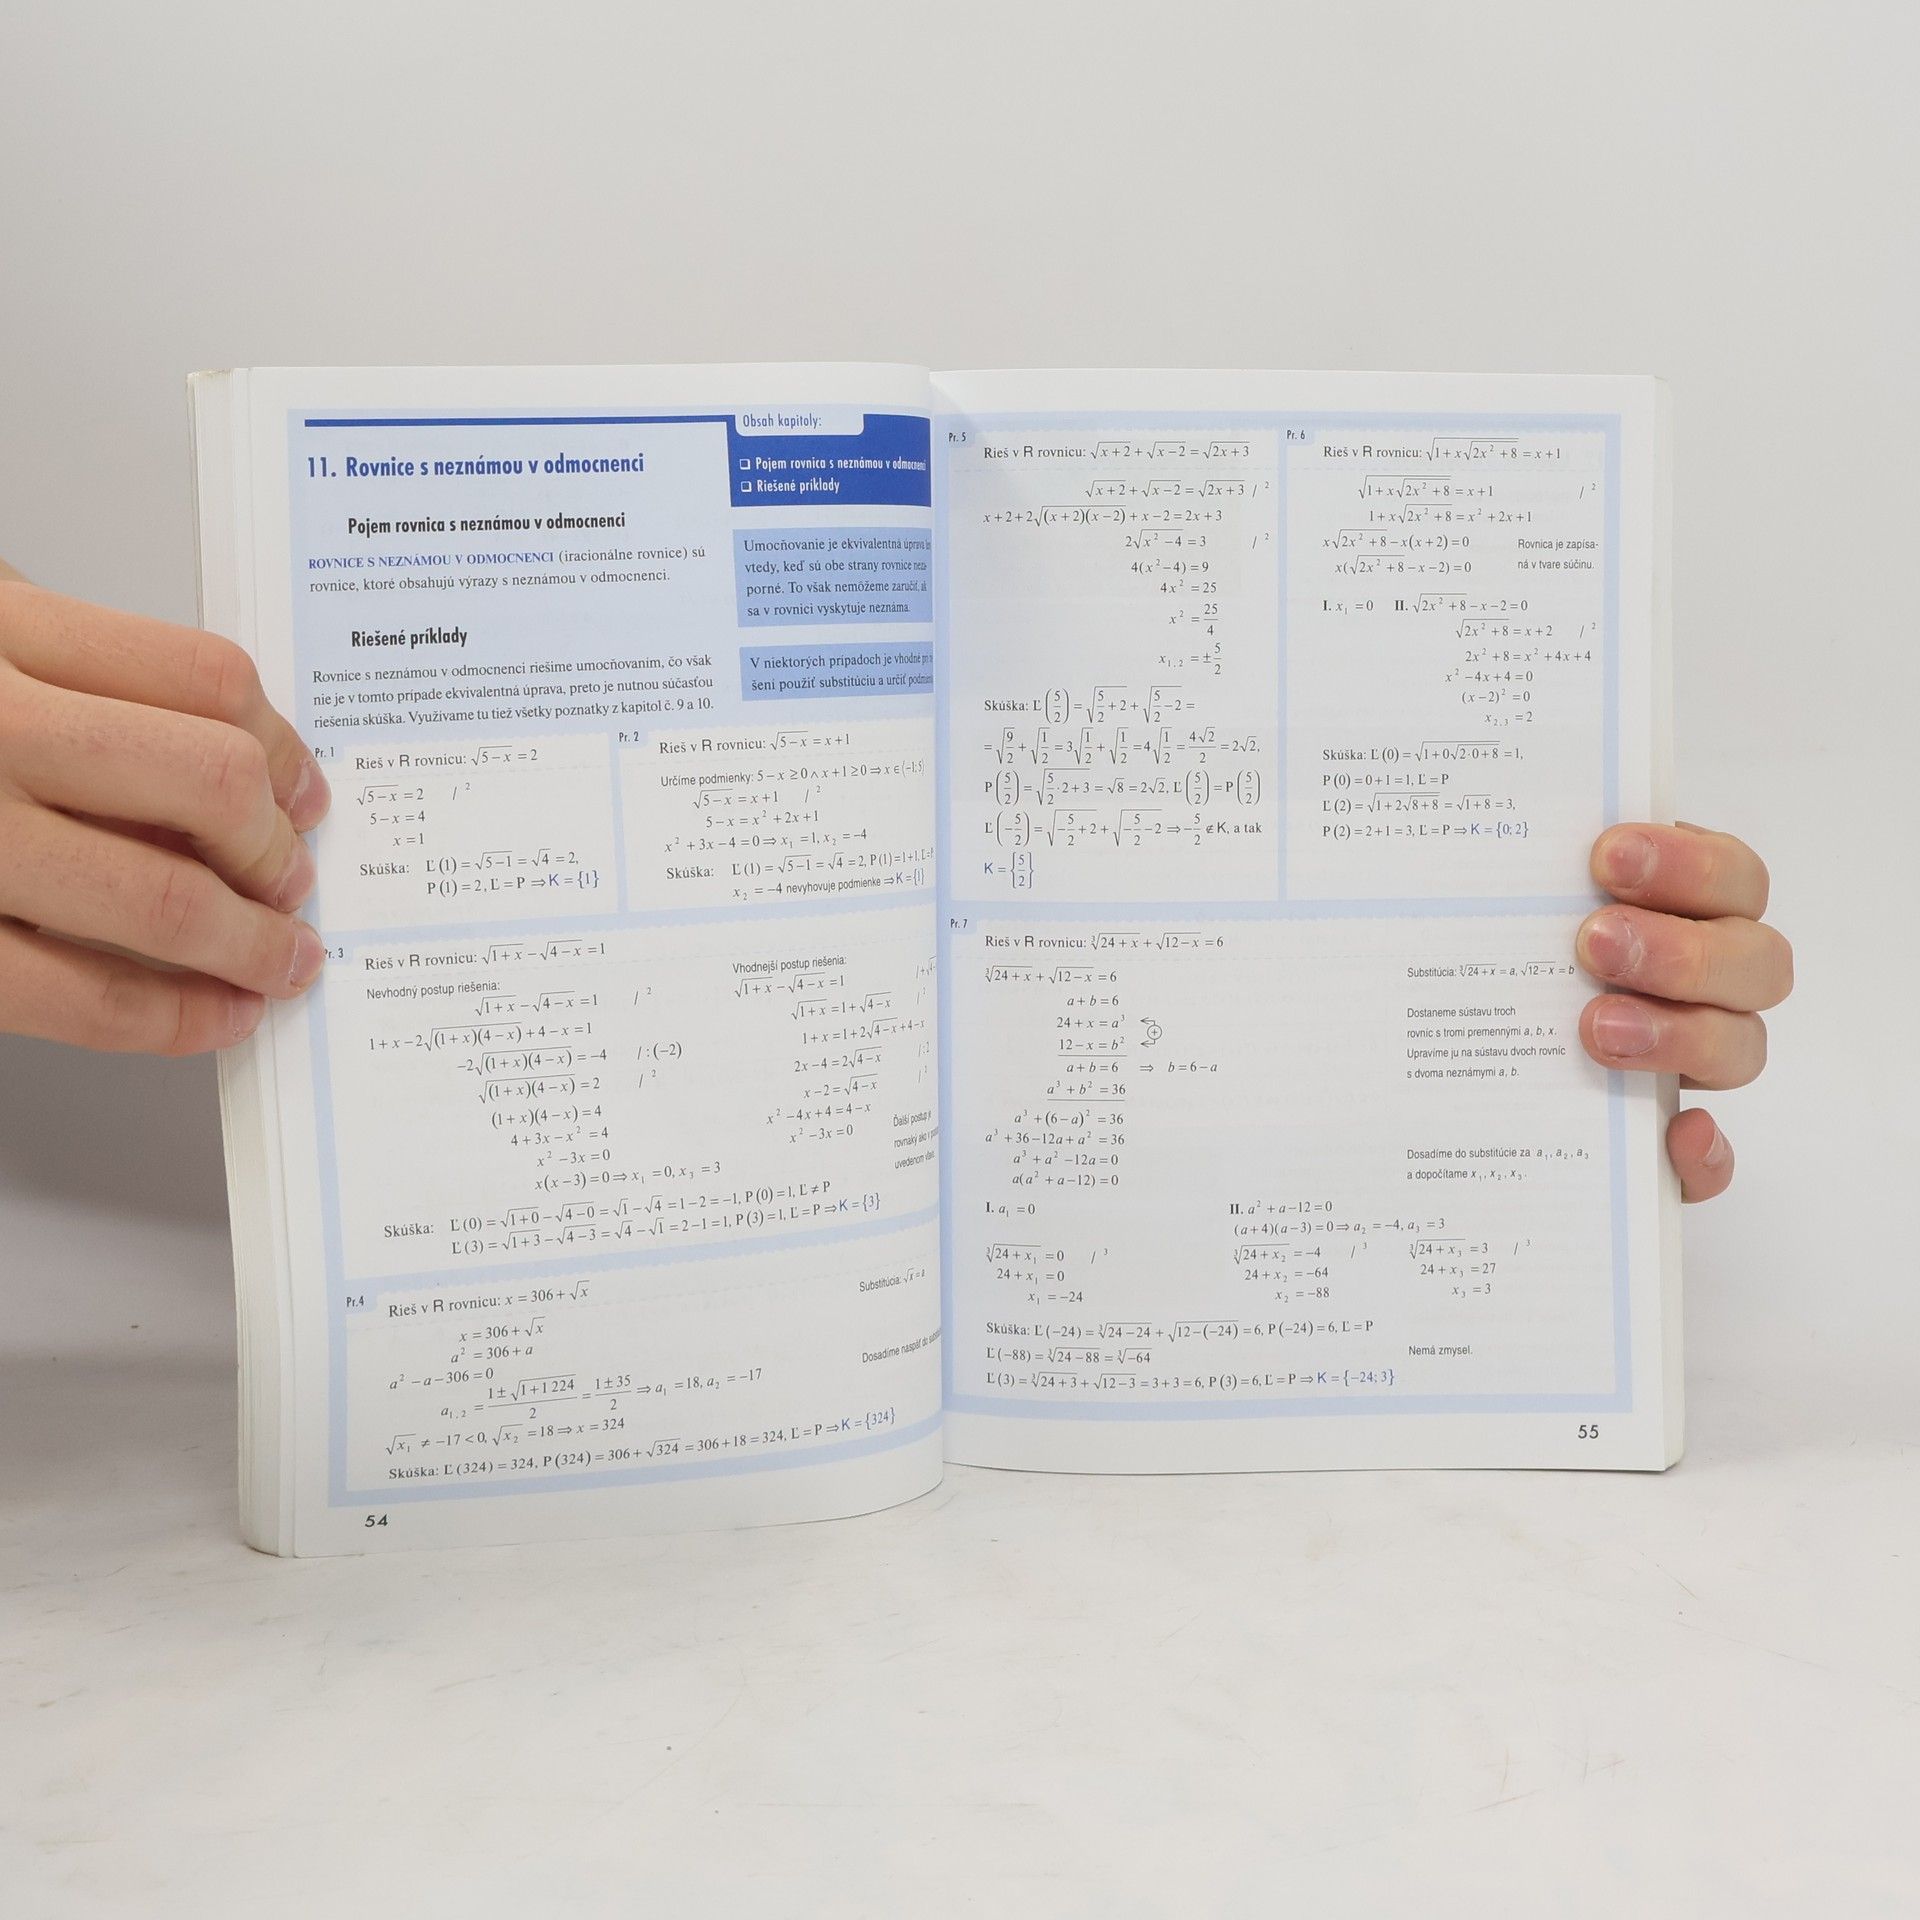 11. Rovnice s neznámou v odmocnenci
Obsah kapitoly:
❑ Pojem rovnica s neznámou v odmocnenci
❑ Riešené príklady
Pojem rovnica s neznámou v odmocnenci
ROVNICE S NEZNÁMOU V ODMOCNENCI (iracionálne rovnice) sú
rovnice, ktoré obsahujú výrazy s neznámou v odmocnenci.
Umocňovanie je ekvivalentná úprava
vtedy, keď sú obe strany rovnice
porné. To však nemôžeme zaručiť, ak
sa v rovnici vyskytuje neznáma.
Riešené príklady
Rovnice s neznámou v odmocnenci riešime umocňovaním, čo však
nie je v tomto prípade ekvivalentná úprava, preto je nutnou súčasťou
riešenia skúška. Využívame tu tiež všetky poznatky z kapitol č. 9 a 10.
V niektorých prípadoch je vhodné
šení použiť substitúciu a určiť
Pr. 1
Rieš v R rovnicu: √(5−x) = 2
√(5−x) = 2 / ²
5−x = 4
x = 1
Skúška: Ľ(1) = √(5−1) = √4 = 2,
P(1) = 2, Ľ = P ⇒ K = {1}
Pr. 2
Rieš v R rovnicu: √(5−x) = x+1
Určíme podmienky: 5−x ≥ 0 ∧ x+1 ≥ 0 ⇒ x ∈ ⟨−1; 5⟩
√(5−x) = x+1 / ²
5−x = x² + 2x + 1
x² + 3x − 4 = 0 ⇒ x₁ = 1, x₂ = −4
Skúška: Ľ(1) = √(5−1) = √4 = 2, P(1) = 1+1,
x₂ = −4 nevyhovuje podmienke ⇒ K = {1}
Pr. 3
Rieš v R rovnicu: √(1+x) − √(4−x) = 1
Nevhodný postup riešenia:
√(1+x) − √(4−x) = 1 / ²
1+x−2√((1+x)(4−x)) + 4−x = 1
−2√((1+x)(4−x)) = −4 / : (−2)
√((1+x)(4−x)) = 2 / ²
(1+x)(4−x) = 4
4+3x−x² = 4
x² −3x = 0
x(x−3) = 0 ⇒ x₁ = 0, x₃ = 3
Vhodnejší postup riešenia:
√(1+x) − √(4−x) = 1
√(1+x) = 1+√(4−x)
1+x = 1+2√(4−x)+4−x
2x−4 = 2√(4−x) / :2
x−2 = √(4−x)
x² −4x+4 = 4−x
x² −3x = 0
Ďalší postup je
rovnaký ako v
uvedenom
Skúška: Ľ(0) = √(1+0) − √(4−0) = √1 − √4 = 1−2 = −1, P(0) = 1, Ľ ≠ P
Ľ(3) = √(1+3) − √(4−3) = √4 − √1 = 2−1 = 1, P(3) = 1, Ľ = P ⇒ K = {3}
Pr.4
Rieš v R rovnicu: x = 306 + √x
Substitúcia: √x = a
x = 306 + √x
a² = 306 + a
a² − a − 306 = 0
Dosadíme naspäť do
a₁,₂ = (1 ± √(1+1 224))/2 = (1 ± 35)/2 ⇒ a₁ = 18, a₂ = −17
√x₁ ≠ −17 < 0, √x₂ = 18 ⇒ x = 324
Skúška: Ľ(324) = 324, P(324) = 306 + √324 = 306 + 18 = 324, Ľ = P ⇒ K = {324}
54
Pr. 5
Rieš v R rovnicu: √(x+2) + √(x−2) = √(2x+3)
√(x+2) + √(x−2) = √(2x+3) / ²
x+2+2√((x+2)(x−2)) + x−2 = 2x+3
2√(x² −4) = 3 / ²
4(x² −4) = 9
4x² = 25
x² = 25/4
x₁,₂ = ±5/2
Skúška: Ľ(5/2) = √(5/2+2) + √(5/2−2) =
= √(9/2) + √(1/2) = 3√(1/2) + √(1/2) = 4√(1/2) = 4√2/2 = 2√2,
P(5/2) = √(5/2·2+3) = √8 = 2√2, Ľ(5/2) = P(5/2)
Ľ(−5/2) = √(−5/2+2) + √(−5/2−2) ⇒ −5/2 ∉ K, a tak
K = {5/2}
Pr. 6
Rieš v R rovnicu: √(1+x√(2x² +8)) = x+1
√(1+x√(2x² +8)) = x+1 / ²
1+x√(2x² +8) = x² +2x+1
x√(2x² +8) − x(x+2) = 0 Rovnica je zapísa-
x(√(2x² +8) − x−2) = 0 ná v tvare súčinu.
I. x₁ = 0 II. √(2x² +8) − x−2 = 0
√(2x² +8) = x+2 / ²
2x² +8 = x² +4x+4
x² −4x+4 = 0
(x−2)² = 0
x₂,₃ = 2
Skúška: Ľ(0) = √(1+0√(2·0+8)) = 1,
P(0) = 0+1 = 1, Ľ = P
Ľ(2) = √(1+2√(8+8)) = √(1+8) = 3,
P(2) = 2+1 = 3, Ľ = P ⇒ K = {0; 2}
Pr. 7
Rieš v R rovnicu: ∛(24+x) + √(12−x) = 6
∛(24+x) + √(12−x) = 6 Substitúcia: ∛(24+x) = a, √(12−x) = b
a+b = 6
24+x = a³
12−x = b²
a+b = 6 ⇒ b = 6−a
a³ + b² = 36
Dostaneme sústavu troch
rovníc s tromi premennými a, b, x.
Upravíme ju na sústavu dvoch rovníc
s dvoma neznámymi a, b.
a³ + (6−a)² = 36
a³ + 36−12a+a² = 36
a³ + a² −12a = 0
a(a² + a−12) = 0
Dosadíme do substitúcie za a₁, a₂, a₃
a dopočítame x₁, x₂, x₃.
I. a₁ = 0 II. a² + a−12 = 0
(a+4)(a−3) = 0 ⇒ a₂ = −4, a₃ = 3
∛(24+x₁) = 0 / ³ ∛(24+x₂) = −4 / ³ ∛(24+x₃) = 3 / ³
24+x₁ = 0 24+x₂ = −64 24+x₃ = 27
x₁ = −24 x₂ = −88 x₃ = 3
Skúška: Ľ(−24) = ∛(24−24) + √(12−(−24)) = 6, P(−24) = 6, Ľ = P
Ľ(−88) = ∛(24−88) = ∛−64 Nemá zmysel.
Ľ(3) = ∛(24+3) + √(12−3) = 3+3 = 6, P(3) = 6, Ľ = P ⇒ K = {−24; 3}
55